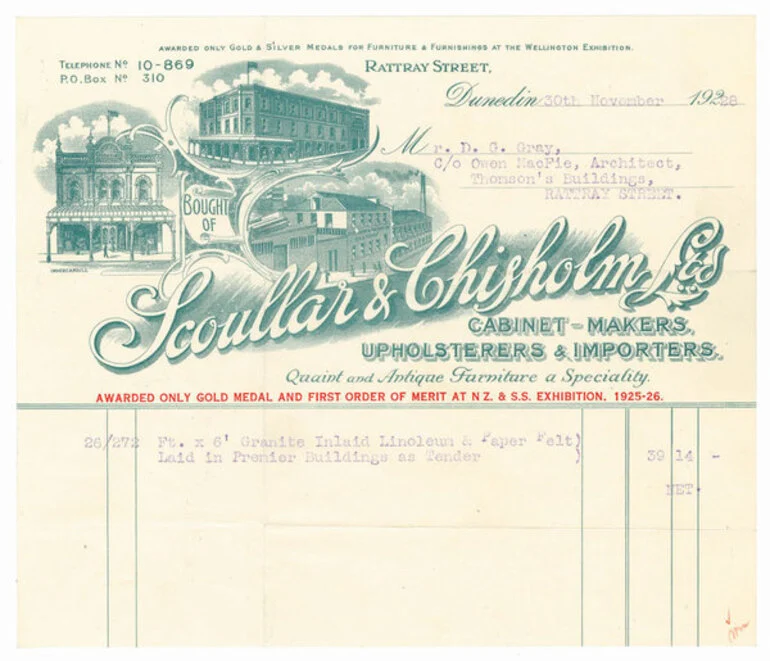 AWARDED ONLY GOLD & SILVER MEDALS FOR FURNITURE & FURNISHINGS AT THE WELLINGTON EXHIBITION.
TELEPHONE Nº 10-869
P.O. Box Nº 310
RATTRAY STREET,
Dunedin 30th November 1928
Mr. D. G. Gray,
C/o Owen MacFie, Architect,
Thomson's Buildings,
RATTRAY STREET.
BOUGHT OF
Scoullar & Chisholm Ltd
CABINET-MAKERS,
UPHOLSTERERS & IMPORTERS.
Quaint and Antique Furniture a Speciality.
AWARDED ONLY GOLD MEDAL AND FIRST ORDER OF MERIT AT N Z. & S.S. EXHIBITION, 1925-26.
26/272 Ft. x 6' Granite Inlaid Linoleum & Paper Felt)
Laid in Premier Buildings as Tender ) 39 14 -
NET.